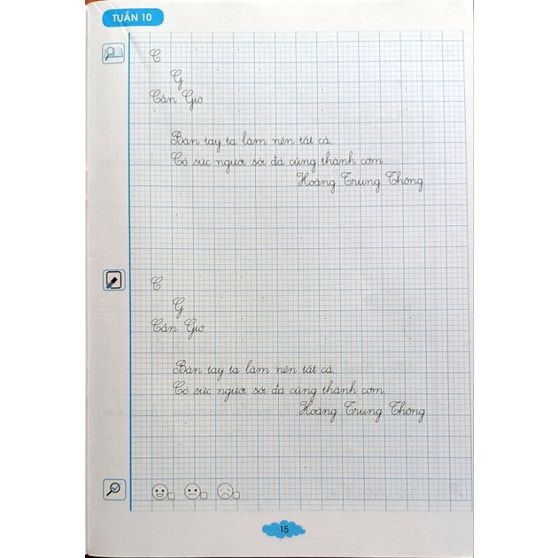 TUẦN 10
C
G
Cần Giờ
Bàn tay ta làm nên tất cả.
Có sức người sỏi đá cũng thành cơm.
Hoàng Trung Thông
C
G
Cần Giờ
Bàn tay ta làm nên tất cả.
Có sức người sỏi đá cũng thành cơm.
Hoàng Trung Thông
15